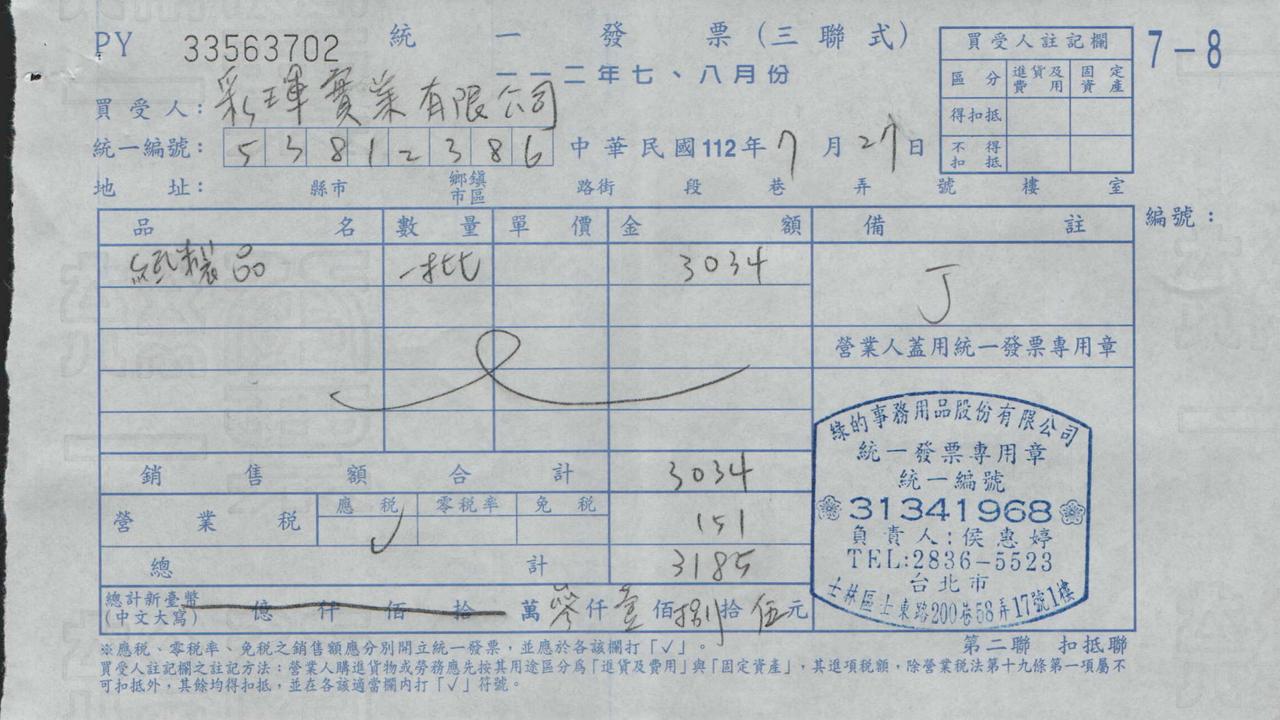 PY 33563702 統一發票(三聯式) 7-8
一一二年七、八月份
買受人註記欄
區分 進貨及費用 固定資產
得扣抵
不得扣抵
買受人:彩琿實業有限公司
統一編號:53812386 中華民國112年7月27日
地址: 縣市 鄉鎮市區 路街 段 巷 弄 號 樓 室
編號:
品名 數量 單價 金額 備註
紙製品 一批 3034 J
營業人蓋用統一發票專用章
銷售額合計 3034
營業稅 應稅 零稅率 免稅 151
✓
總計 3185
總計新臺幣(中文大寫) 億 仟 佰 拾 萬 仟 壹 佰 捌 拾 伍 元
綠的事務用品股份有限公司
統一發票專用章
統一編號
31341968
負責人:侯惠婷
TEL:2836-5523
台北市
士林區士東路200巷58弄17號1樓
※應稅、零稅率、免稅之銷售額應分別開立統一發票,並應於各該欄打「✓」。
第二聯 扣抵聯
買受人註記欄之註記方法:營業人購進貨物或勞務應先按其用途區分為「進貨及費用」與「固定資產」,其進項稅額,除營業稅法第十九條第一項屬不
可扣抵外,其餘均得扣抵,並在各該適當欄內打「✓」符號。